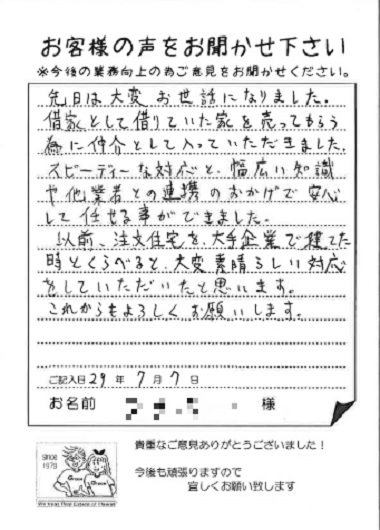 お客様の声をお聞かせ下さい
※今後の業務向上の為ご意見をお聞かせください。
先日は大変お世話になりました。
借家として借りていた家を売ってもらう
為に仲介として入っていただきました。
スピーディーな対応と、幅広い知識
や他業者との連携のおかげで安心
して任せる事ができました。
以前、注文住宅を、大手企業で建てた
時とくらべると、大変素晴らしい対応
をしていただいたと思います。
これからもよろしくお願いします。
ご記入日 29 年 7 月 7 日
お名前 様
SINCE
1978
貴重なご意見ありがとうございました！
今後も頑張りますので
宜しくお願い致します